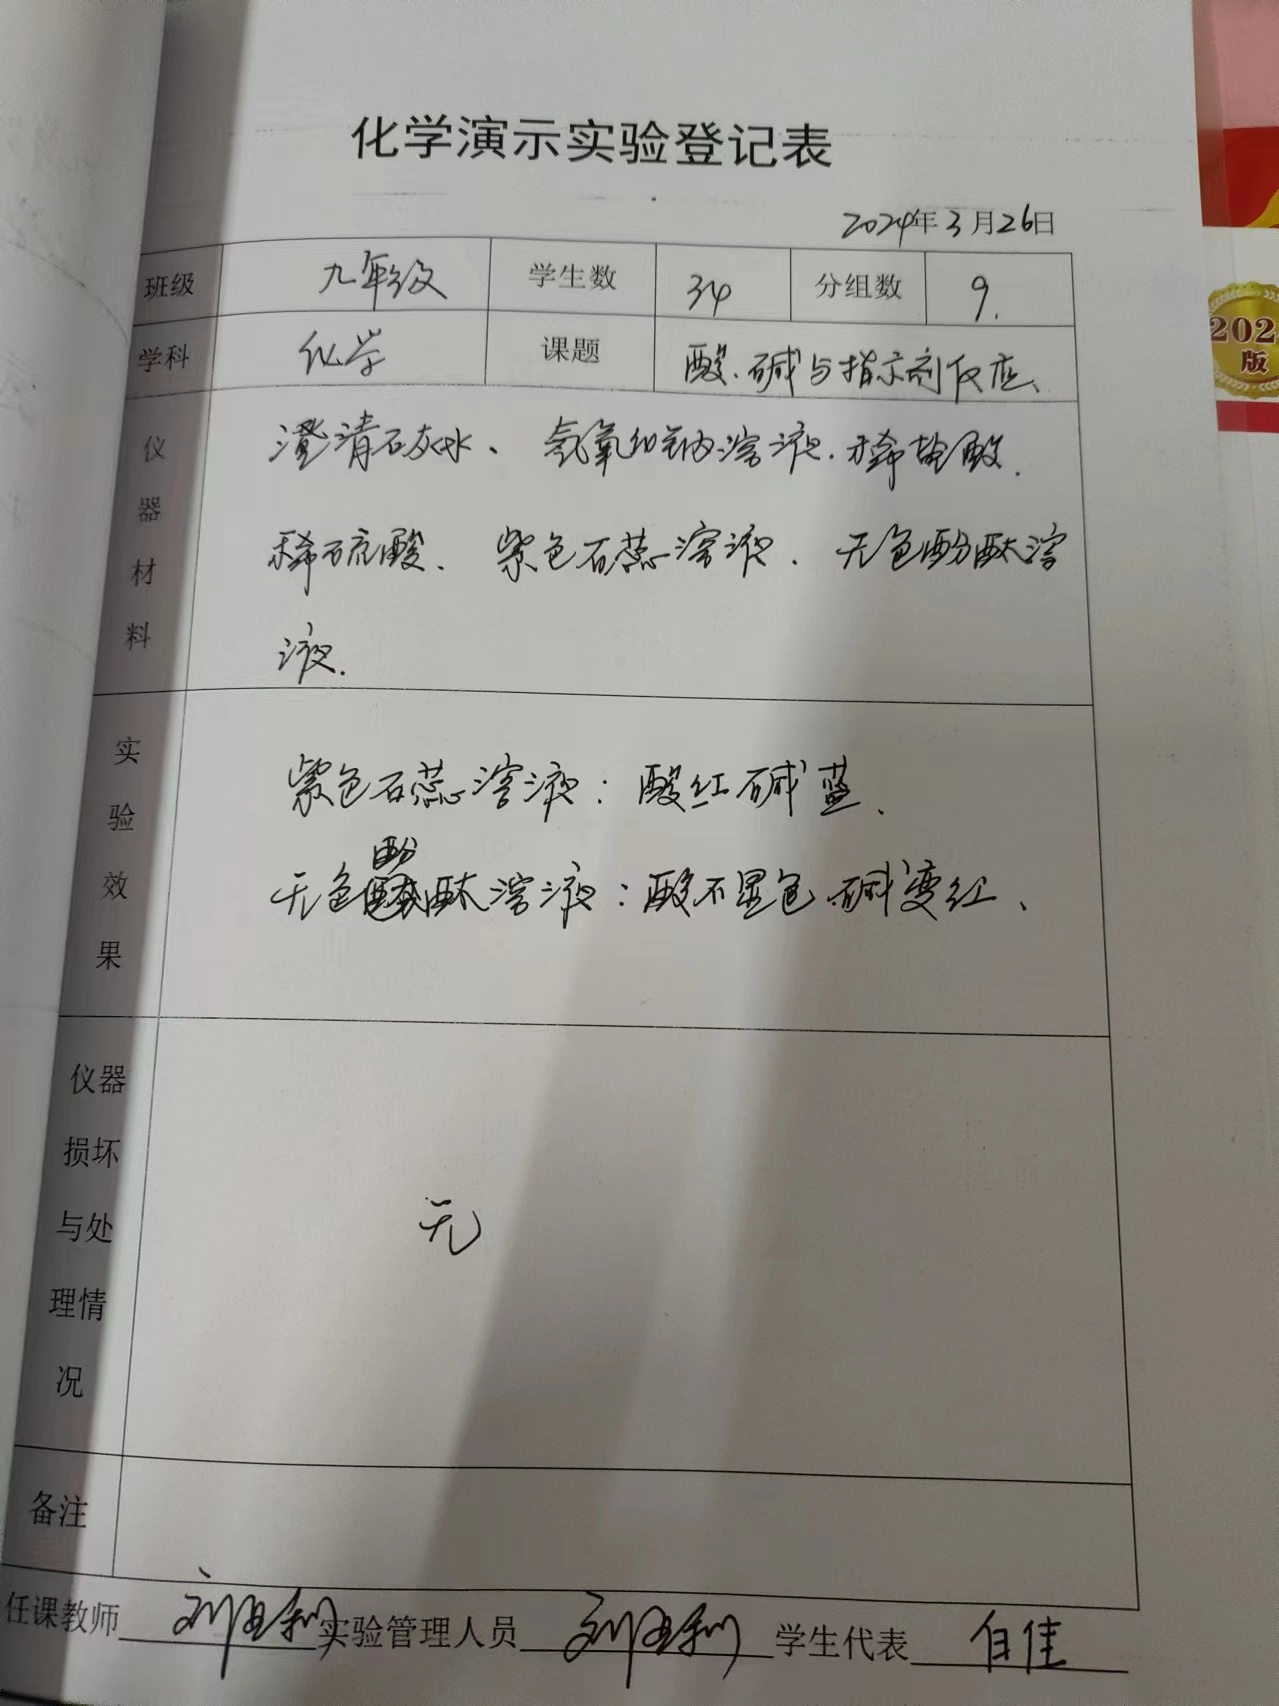 化学演示实验登记表
2024年3月26日
班级 九年级 学生数 34 分组数 9.
学科 化学 课题 酸、碱与指示剂反应、
仪器材料
澄清石灰水、氢氧化钠溶液、稀盐酸、
稀硫酸、紫色石蕊溶液、无色酚酞溶
液.
实验效果
紫色石蕊溶液：酸红碱蓝、
无色酚酞溶液：酸不显色、碱变红、
仪器
损坏
与处
理情
况
无
备注
任课教师 实验管理人员 学生代表 白佳
202
版